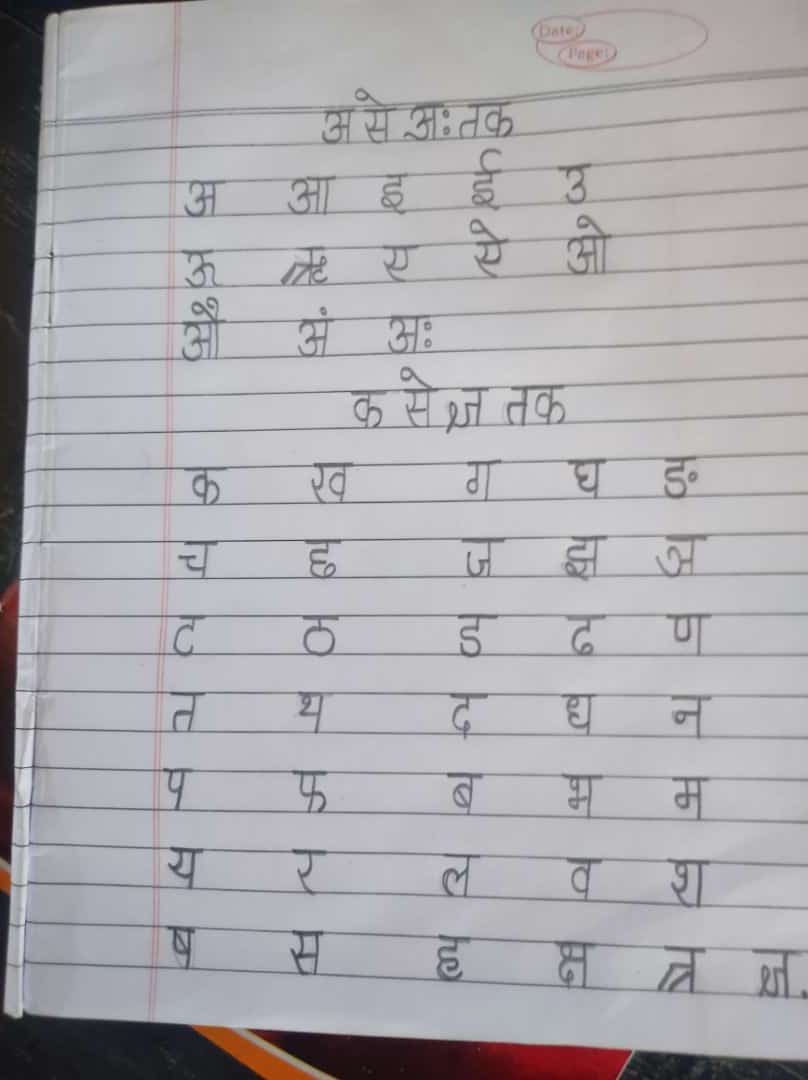 Date:
Page:
अ से अः तक
अ आ इ ई उ
ऊ ऋ ए ऐ ओ
औ अं अः
क से ज्ञ तक
क ख ग घ ङ
च छ ज झ ञ
ट ठ ड ढ ण
त थ द ध न
प फ ब भ म
य र ल व श
ष स ह क्ष त्र ज्ञ.